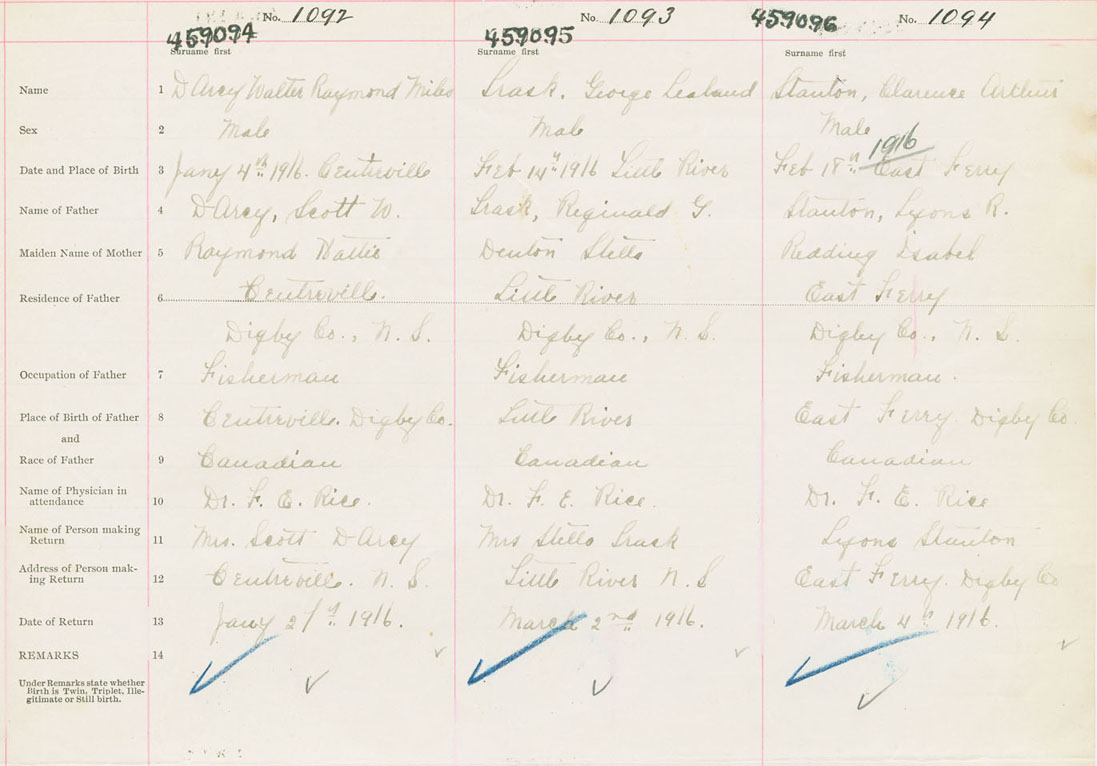 No. 1092 No. 1093 No. 1094
459094 459095 459096
Surname first Surname first Surname first
Name 1 D'Arcy Walter Raymond Miles Trask, George Lealand Stanton, Clarence Arthur
Sex 2 Male Male Male
1916
Date and Place of Birth 3 Jany 4th 1916. Centreville Feb 14th 1916 Little River Feb 18th East Ferry
Name of Father 4 D'Arcy, Scott W. Trask, Reginald G. Stanton, Lyons R.
Maiden Name of Mother 5 Raymond Hattie Denton Stella Redding Isabel
Residence of Father 6 Centreville. Little River East Ferry
Digby Co., N. S. Digby Co., N. S. Digby Co., N. S.
Occupation of Father 7 Fisherman Fisherman Fisherman.
Place of Birth of Father 8 Centreville. Digby Co. Little River East Ferry. Digby Co.
and
Race of Father 9 Canadian Canadian Canadian
Name of Physician in
attendance 10 Dr. F. E. Rice. Dr. F. E. Rice. Dr. F. E. Rice
Name of Person making
Return 11 Mrs. Scott D'Arcy Mrs Stella Trask Lyons Stanton
Address of Person mak-
ing Return 12 Centreville. N. S. Little River N. S East Ferry. Digby Co
Date of Return 13 Jany 21st 1916. March 2nd 1916. March 4th 1916.
REMARKS 14
Under Remarks state whether
Birth is Twin, Triplet, Ille-
gitimate or Still birth.